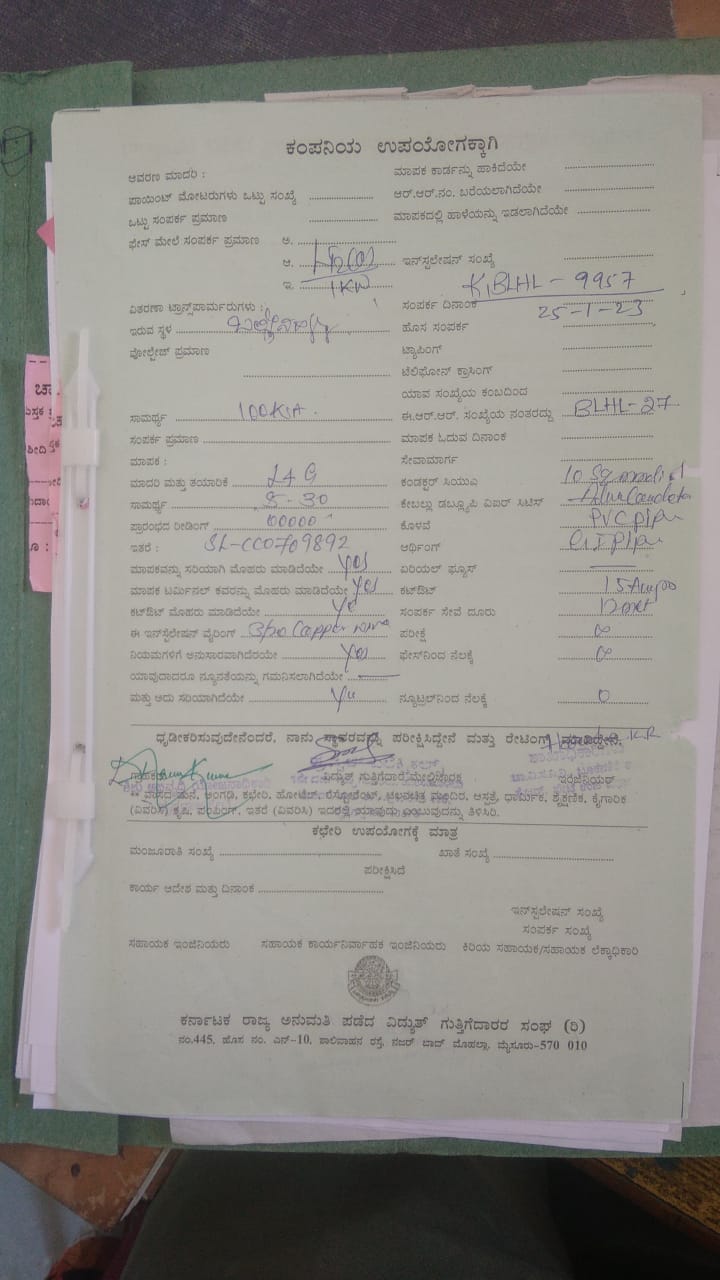 ಕಂಪನಿಯ ಉಪಯೋಗಕ್ಕಾಗಿ
ಆವರಣ ಮಾದರಿ : ಮಾಪಕ ಕಾರ್ಡನ್ನು ಹಾಕಿದೆಯೇ
ಪಾಯಿಂಟ್ ಮೋಟರುಗಳು ಒಟ್ಟು ಸಂಖ್ಯೆ ಆರ್.ಆರ್.ನಂ. ಬರೆಯಲಾಗಿದೆಯೇ
ಒಟ್ಟು ಸಂಪರ್ಕ ಪ್ರಮಾಣ ಮಾಪಕದಲ್ಲಿ ಹಾಳೆಯನ್ನು ಇಡಲಾಗಿದೆಯೇ
ಫೇಸ್ ಮೇಲೆ ಸಂಪರ್ಕ ಪ್ರಮಾಣ ಅ.
ಆ. ಇನ್‌ಸ್ಟಲೇಷನ್ ಸಂಖ್ಯೆ
ಇ. 1KW KBLHL - 9957
ವಿತರಣಾ ಟ್ರಾನ್ಸ್‌ಪಾರ್ಮರುಗಳು : ಸಂಪರ್ಕ ದಿನಾಂಕ 25-1-23
ಇರುವ ಸ್ಥಳ ಹೊಸ ಸಂಪರ್ಕ
ವೋಲ್ಟೇಜ್ ಪ್ರಮಾಣ ಟ್ಯಾಪಿಂಗ್
ಟೆಲಿಫೋನ್ ಕ್ರಾಸಿಂಗ್
ಯಾವ ಸಂಖ್ಯೆಯ ಕಂಬದಿಂದ
ಸಾಮರ್ಥ್ಯ 100KVA ಈ.ಆರ್.ಆರ್. ಸಂಖ್ಯೆಯ ನಂತರದ್ದು BLHL-27
ಸಂಪರ್ಕ ಪ್ರಮಾಣ ಮಾಪಕ ಓದುವ ದಿನಾಂಕ
ಮಾಪಕ : ಸೇವಾಮಾರ್ಗ
ಮಾದರಿ ಮತ್ತು ತಯಾರಿಕೆ L&G ಕಂಡಕ್ಟರ್ ಸಿಯುಎ 10 Sq
ಸಾಮರ್ಥ್ಯ 5-30 ಕೇಬಲ್ಲು ಡಬ್ಲ್ಯೂಪಿ ವಿಐರ್ ಸಿಟಿಸ್
ಪ್ರಾರಂಭದ ರೀಡಿಂಗ್ 00000 ಕೊಳವೆ PVC pipe
ಇತರೆ : SL-CC0709892 ಆರ್ಥಿಂಗ್ G.I pipe
ಮಾಪಕವನ್ನು ಸರಿಯಾಗಿ ಮೊಹರು ಮಾಡಿದೆಯೇ Yes ಏರಿಯಲ್ ಫ್ಯೂಸ್
ಮಾಪಕ ಟರ್ಮಿನಲ್ ಕವರನ್ನು ಮೊಹರು ಮಾಡಿದೆಯೇ Yes ಕಟ್‌ಔಟ್ 15 Amps
ಕಟ್‌ಔಟ್ ಮೊಹರು ಮಾಡಿದೆಯೇ Yes ಸಂಪರ್ಕ ಸೇವೆ ದೂರು
ಈ ಇನ್‌ಸ್ಟಲೇಷನ್ ವೈರಿಂಗ್ 3/20 Copper wire ಪರೀಕ್ಷೆ ∞
ನಿಯಮಗಳಿಗೆ ಅನುಸಾರವಾಗಿದೆರಯೇ Yes ಫೇಸ್‌ನಿಂದ ನೆಲಕ್ಕೆ ∞
ಯಾವುದಾದರೂ ನ್ಯೂನತೆಯನ್ನು ಗಮನಿಸಲಾಗಿದೆಯೇ
ಮತ್ತು ಅದು ಸರಿಯಾಗಿದೆಯೇ Yes ನ್ಯೂಟ್ರಲ್‌ನಿಂದ ನೆಲಕ್ಕೆ 0
ಧೃಡೀಕರಿಸುವುದೇನೆಂದರೆ, ನಾನು ಸ್ಥಾವರವನ್ನು ಪರೀಕ್ಷಿಸಿದ್ದೇನೆ ಮತ್ತು ರೇಟಿಂಗ್ ಮಾಡಿದ್ದೇನೆ.
ಗ್ರಾಹಕರು ವಿದ್ಯುತ್ ಗುತ್ತಿಗೆದಾರ/ಮೇಲ್ವಿಚಾರಕ ಇಂಜಿನಿಯರ್
** ವಾಸದ ಮನೆ, ಅಂಗಡಿ, ಕಛೇರಿ, ಹೋಟೆಲ್, ರೆಸ್ಟೋರೆಂಟ್, ಚಲನಚಿತ್ರ ಮಂದಿರ, ಆಸ್ಪತ್ರೆ, ಧಾರ್ಮಿಕ, ಶೈಕ್ಷಣಿಕ, ಕೈಗಾರಿಕ
(ವಿವರಿಸಿ) ಕೃಷಿ, ಪಂಪಿಂಗ್, ಇತರೆ (ವಿವರಿಸಿ) ಇದರಲ್ಲಿ ಯಾವುದು ಎಂಬುವುದನ್ನು ತಿಳಿಸಿರಿ.
ಕಛೇರಿ ಉಪಯೋಗಕ್ಕೆ ಮಾತ್ರ
ಮಂಜೂರಾತಿ ಸಂಖ್ಯೆ ಖಾತೆ ಸಂಖ್ಯೆ
ಪರೀಕ್ಷಿಸಿದೆ
ಕಾರ್ಯ ಆದೇಶ ಮತ್ತು ದಿನಾಂಕ
ಇನ್‌ಸ್ಟಲೇಷನ್ ಸಂಖ್ಯೆ
ಸಂಪರ್ಕ ಸಂಖ್ಯೆ
ಸಹಾಯಕ ಇಂಜಿನಿಯರು ಸಹಾಯಕ ಕಾರ್ಯನಿರ್ವಾಹಕ ಇಂಜಿನಿಯರು ಕಿರಿಯ ಸಹಾಯಕ/ಸಹಾಯಕ ಲೆಕ್ಕಾಧಿಕಾರಿ
ಕರ್ನಾಟಕ ರಾಜ್ಯ ಅನುಮತಿ ಪಡೆದ ವಿದ್ಯುತ್ ಗುತ್ತಿಗೆದಾರರ ಸಂಘ (ರಿ)
ನಂ.445, ಹೊಸ ನಂ. ಎನ್-10, ಶಾಲಿವಾಹನ ರಸ್ತೆ, ನಜರ್ ಬಾದ್ ಮೊಹಲ್ಲಾ, ಮೈಸೂರು-570 010